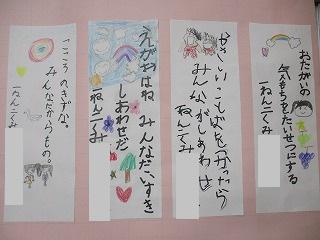 おたがいの
気もちをたいせつにする
一ねん二くみ
やさしいことばをつかったら
みんながしあわせ
一ねん二くみ
えがおはね みんなだいすき
しあわせだ
一ねん二くみ
こころのきずな。
みんなたからもの。
一ねん二くみ